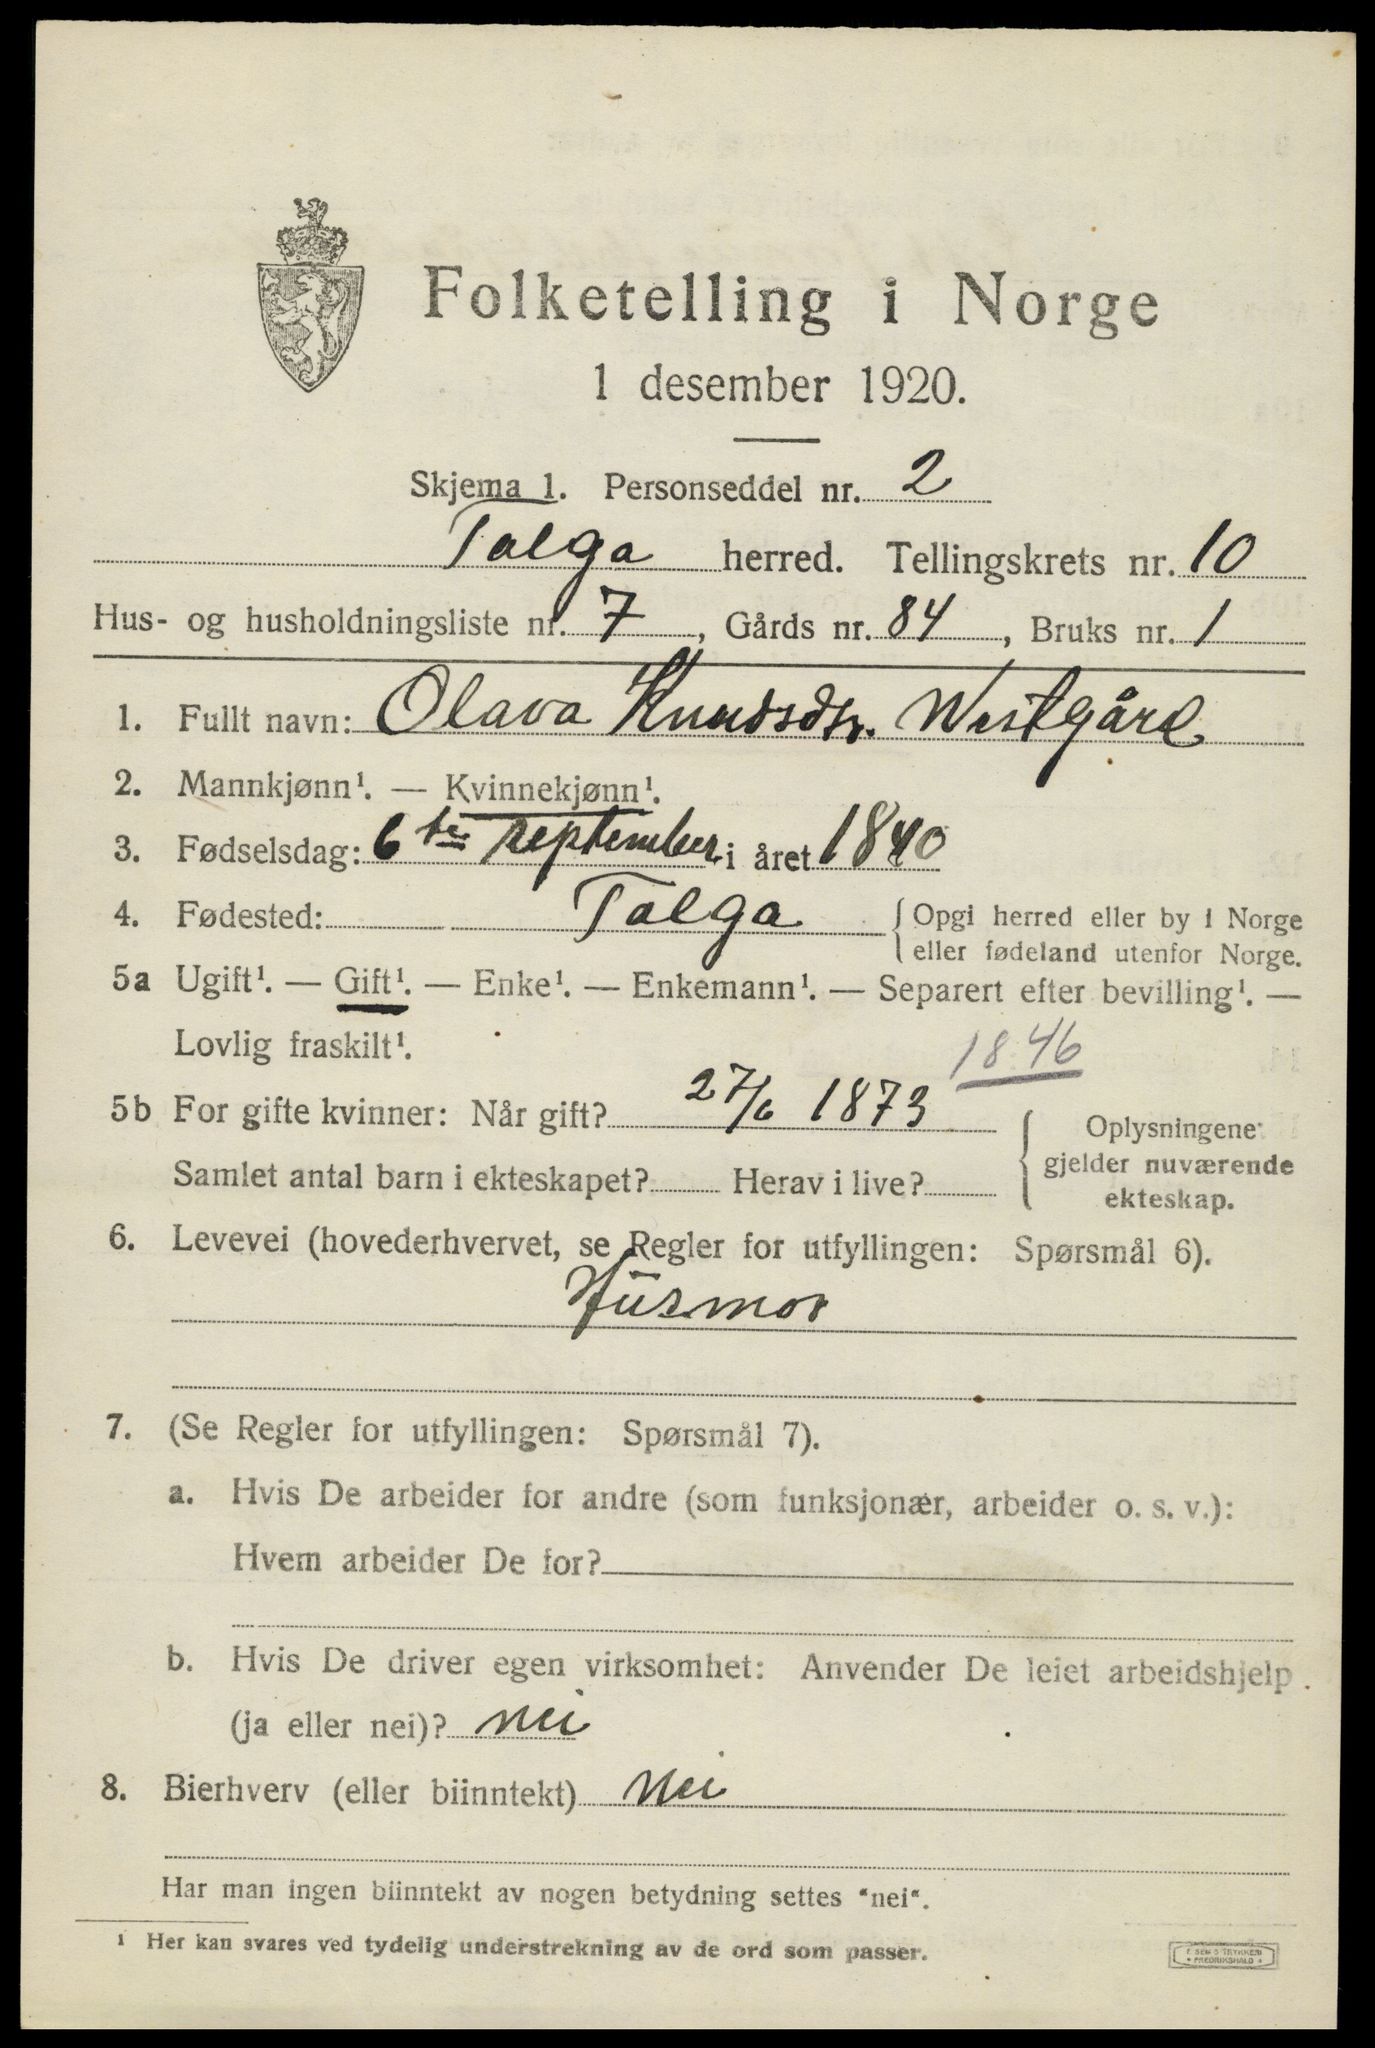 Folketelling i Norge
1 desember 1920.
Skjema 1. Personseddel nr. 2
Tolga herred. Tellingskrets nr. 10
Hus- og husholdningsliste nr. 7, Gårds nr. 84, Bruks nr. 1
1. Fullt navn: Olava Knudsdtr. Westgård
2. Mannkjønn¹. — Kvinnekjønn¹.
3. Fødselsdag: 6te september i året 1840
4. Fødested: Tolga {Opgi herred eller by i Norge
eller fødeland utenfor Norge.
5a Ugift¹. — Gift¹. — Enke¹. — Enkemann¹. — Separert efter bevilling¹. —
Lovlig fraskilt¹.
1846
5b For gifte kvinner: Når gift? 27/6 1873
Samlet antal barn i ekteskapet? Herav i live?
{Oplysningene
gjelder nuværende
ekteskap.
6. Levevei (hovederhvervet, se Regler for utfyllingen: Spørsmål 6).
Husmor
7. (Se Regler for utfyllingen: Spørsmål 7).
a. Hvis De arbeider for andre (som funksjonær, arbeider o. s. v.):
Hvem arbeider De for?
b. Hvis De driver egen virksomhet: Anvender De leiet arbeidshjelp
(ja eller nei)? nei
8. Bierhverv (eller biinntekt) Nei
Har man ingen biinntekt av nogen betydning settes "nei".
1 Her kan svares ved tydelig understrekning av de ord som passer.
SEM & TRYKKERI
FREDRIKSHALD